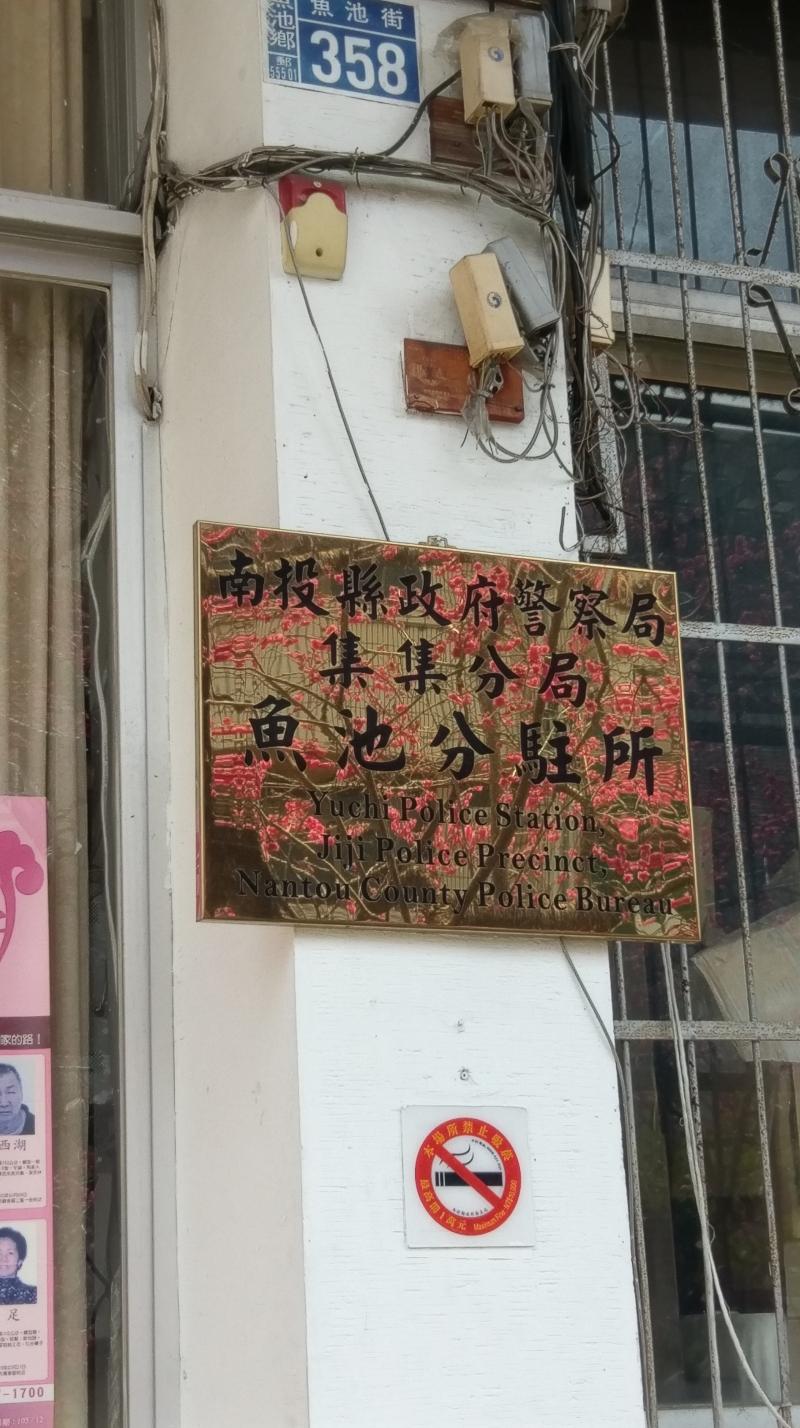 魚池鄉
魚池街
郵
55501
358
南投縣政府警察局
集集分局
魚池分駐所
Yuchi Police Station,
Jiji Police Precinct,
Nantou County Police Bureau
家的路！
西湖
足
-1700
本場所禁止吸菸
最高罰1萬元 Maximum Fine NT$10,000